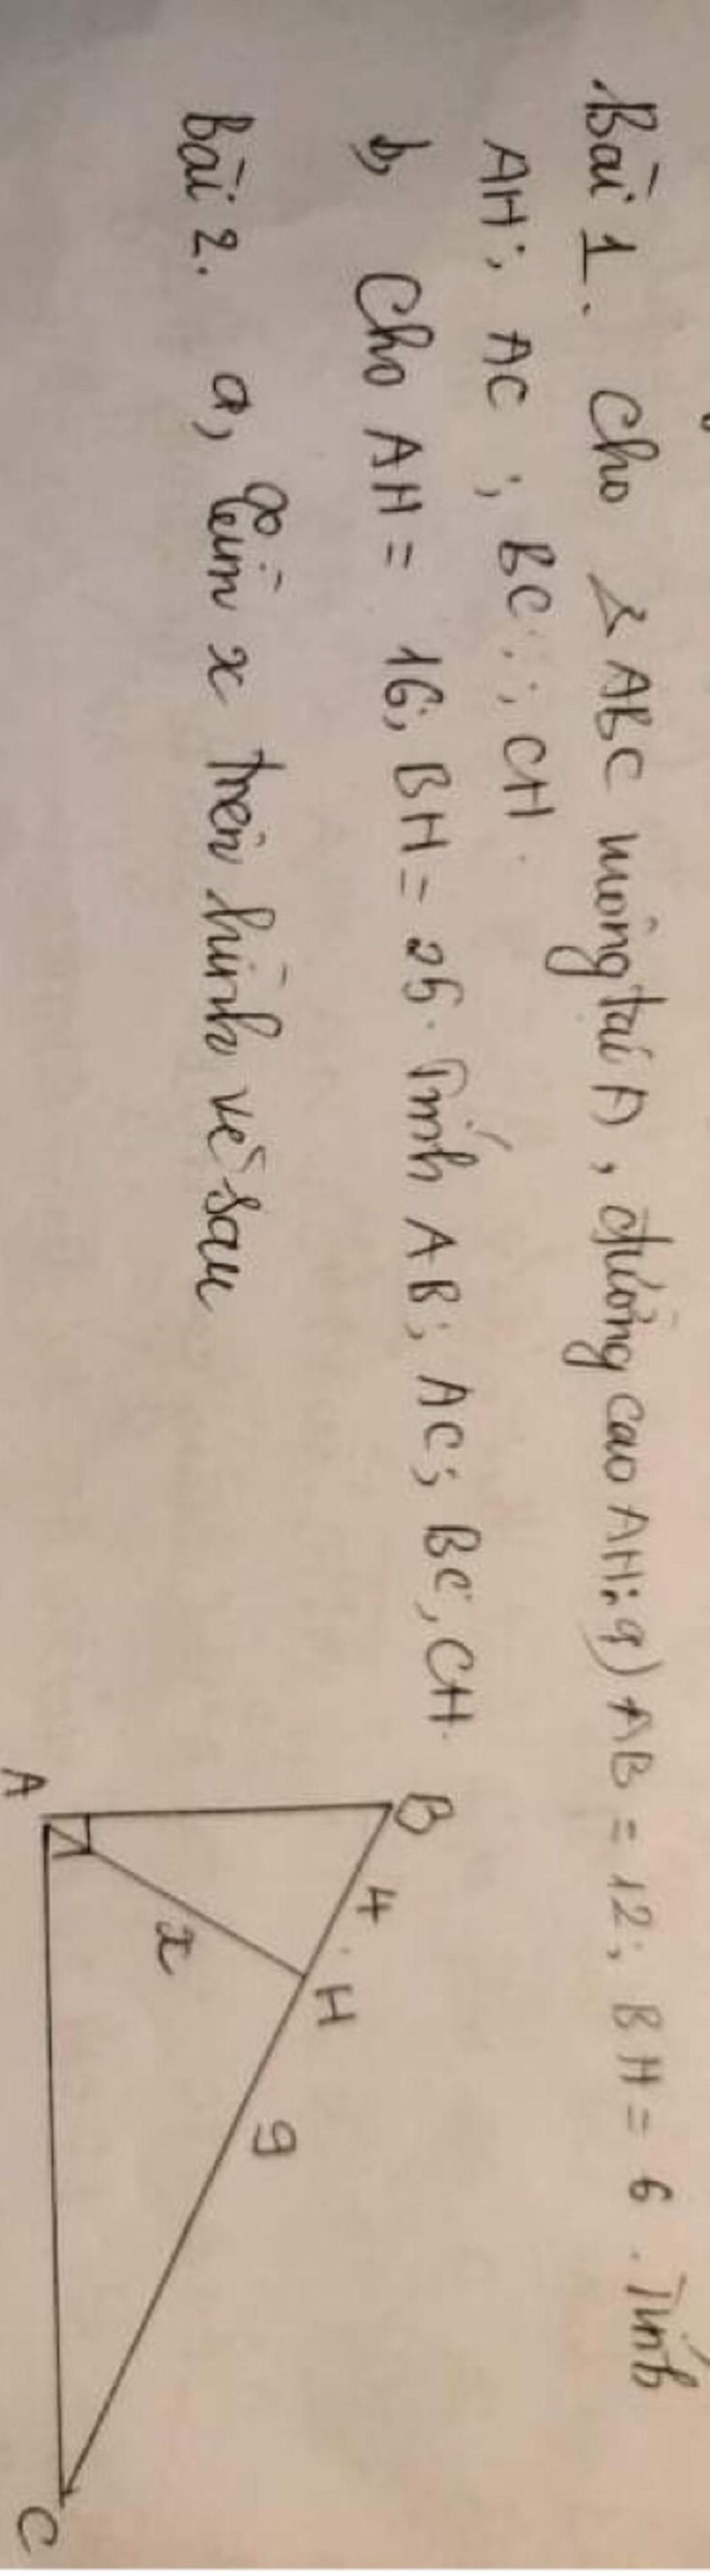 Bài 1. Cho △ABC vuông tại A, đường cao AH: a) AB = 12; BH = 6. Tính
AH; AC; BC; CH.
b, Cho AH = 16; BH = 25. Tính AB; AC; BC, CH.
Bài 2. a, Tìm x trên hình vẽ sau
B
4
H
9
x
A
C